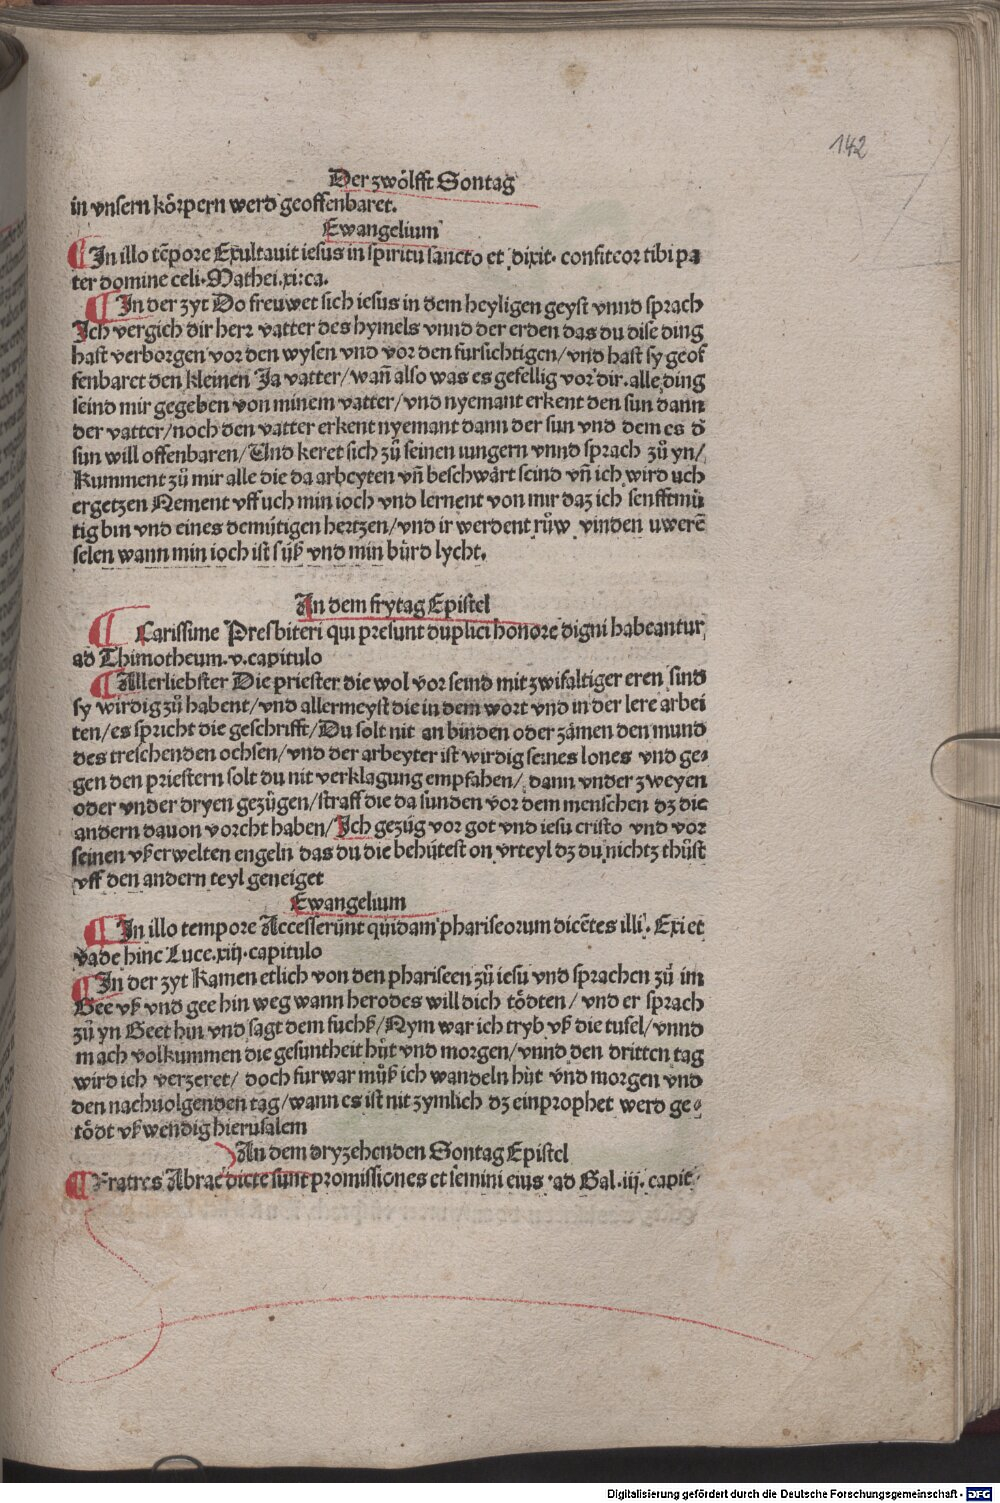 142
Der zwölfft Sontag
in vnsern körpern werd geoffenbaret.
Ewangelium
In illo tēpore Exultauit iesus in spiritu sancto et dixit. confiteor tibi pa
ter domine celi. Mathei. xi: ca.
In der zyt Do freuwet sich iesus in dem heyligen geyst vnnd sprach
Ich vergich dir herr vatter des hymels vnnd der erden das du dise ding
hast verborgen vor den wysen vnd vor den fursichtigen/vnd hast sy geof
fenbaret den kleinen Ja vatter/wañ also was es gefellig vor dir. alle ding
seind mir gegeben von minem vatter/vnd nyemant erkent den sun dann
der vatter/noch den vatter erkent nyemant dann der sun vnd dem es d̄
sun will offenbaren/Vnd keret sich zů seinen iungern vnnd sprach zů yn/
Kumment zů mir alle die da arbeyten vñ beschwärt seind vñ ich wird uch
ergetzen Nement vff uch min ioch vnd lernent von mir daz ich senfftmü
tig bin vnd eines demütigen hertzen/vnd ir werdent růw vinden uwerē
selen wann min ioch ist süß vnd min bürd lycht.
In dem frytag Epistel
Carissime Presbiteri qui presunt duplici honore digni habeantur,
ad Thimotheum. v. capitulo
Allerliebster Die priester die wol vor seind mit zwifaltiger eren sind
sy wirdig zů habent/vnd allermeyst die in dem wort vnd in der lere arbei
ten/es spricht die geschrifft/Du solt nit an binden oder zämen den mund
des treschenden ochsen/vnd der arbeyter ist wirdig seines lones vnd ge⸗
gen den priestern solt du nit verklagung empfahen/ dann vnder zweyen
oder vnder dryen gezügen/straff die da sünden vor dem menschen dz die
andern dauon vorcht haben/Ich gezüg vor got vnd iesu cristo vnd vor
seinen vßerwelten engeln das du die behütest on vrteyl dz du nichtz thüst
vff den andern teyl geneiget
Ewangelium
In illo tempore Accesserunt quidam phariseorum dicētes illi. Exi et
vade hinc Luce. xiij. capitulo
In der zyt Kamen etlich von den phariseen zů iesu vnd sprachen zů im
Gee vß vnd gee hin weg wann herodes will dich tödten/ vnd er sprach
zů yn Geet hin vnd sagt dem fuchß/Nym war ich tryb vß die tufel/vnnd
mach volkummen die gesuntheit hüt vnd morgen/vnnd den dritten tag
wird ich verzeret/ doch furwar můß ich wandeln hüt vnd morgen vnd
den nachuolgenden tag/wann es ist nit zymlich dz ein prophet werd ge⸗
tödt vßwendig hierusalem
An dem dryzehenden Sontag Epistel
Fratres Abrae dicte sunt promissiones et semini eius. ad Gal. iij. capit.
Digitalisierung gefördert durch die Deutsche Forschungsgemeinschaft - DFG